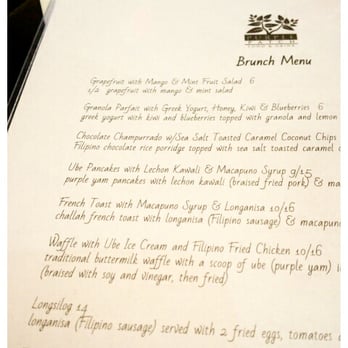 Brunch Menu
Grapefruit with Mango & Mint Fruit Salad 6
1/2 grapefruit with mango & mint salad
Granola Parfait with Greek Yogurt, Honey, Kiwi & Blueberries 6
greek yogurt with kiwi and blueberries topped with granola and lemon
Chocolate Champurrado w/Sea Salt Toasted Caramel Coconut Chips
Filipino chocolate rice porridge topped with sea salt toasted caramel
Ube Pancakes with Lechon Kawali & Macapuno Syrup 9/15
purple yam pancakes with lechon kawali (braised fried pork) & ma
French Toast with Macapuno Syrup & Longanisa 10/16
challah french toast with longanisa (Filipino sausage) & macapun
Waffle with Ube Ice Cream and Filipino Fried Chicken 10/16
traditional buttermilk waffle with a scoop of ube (purple yam) i
(braised with soy and vinegar, then fried)
Longsilog 14
longanisa (Filipino sausage) served with 2 fried eggs, tomatoes